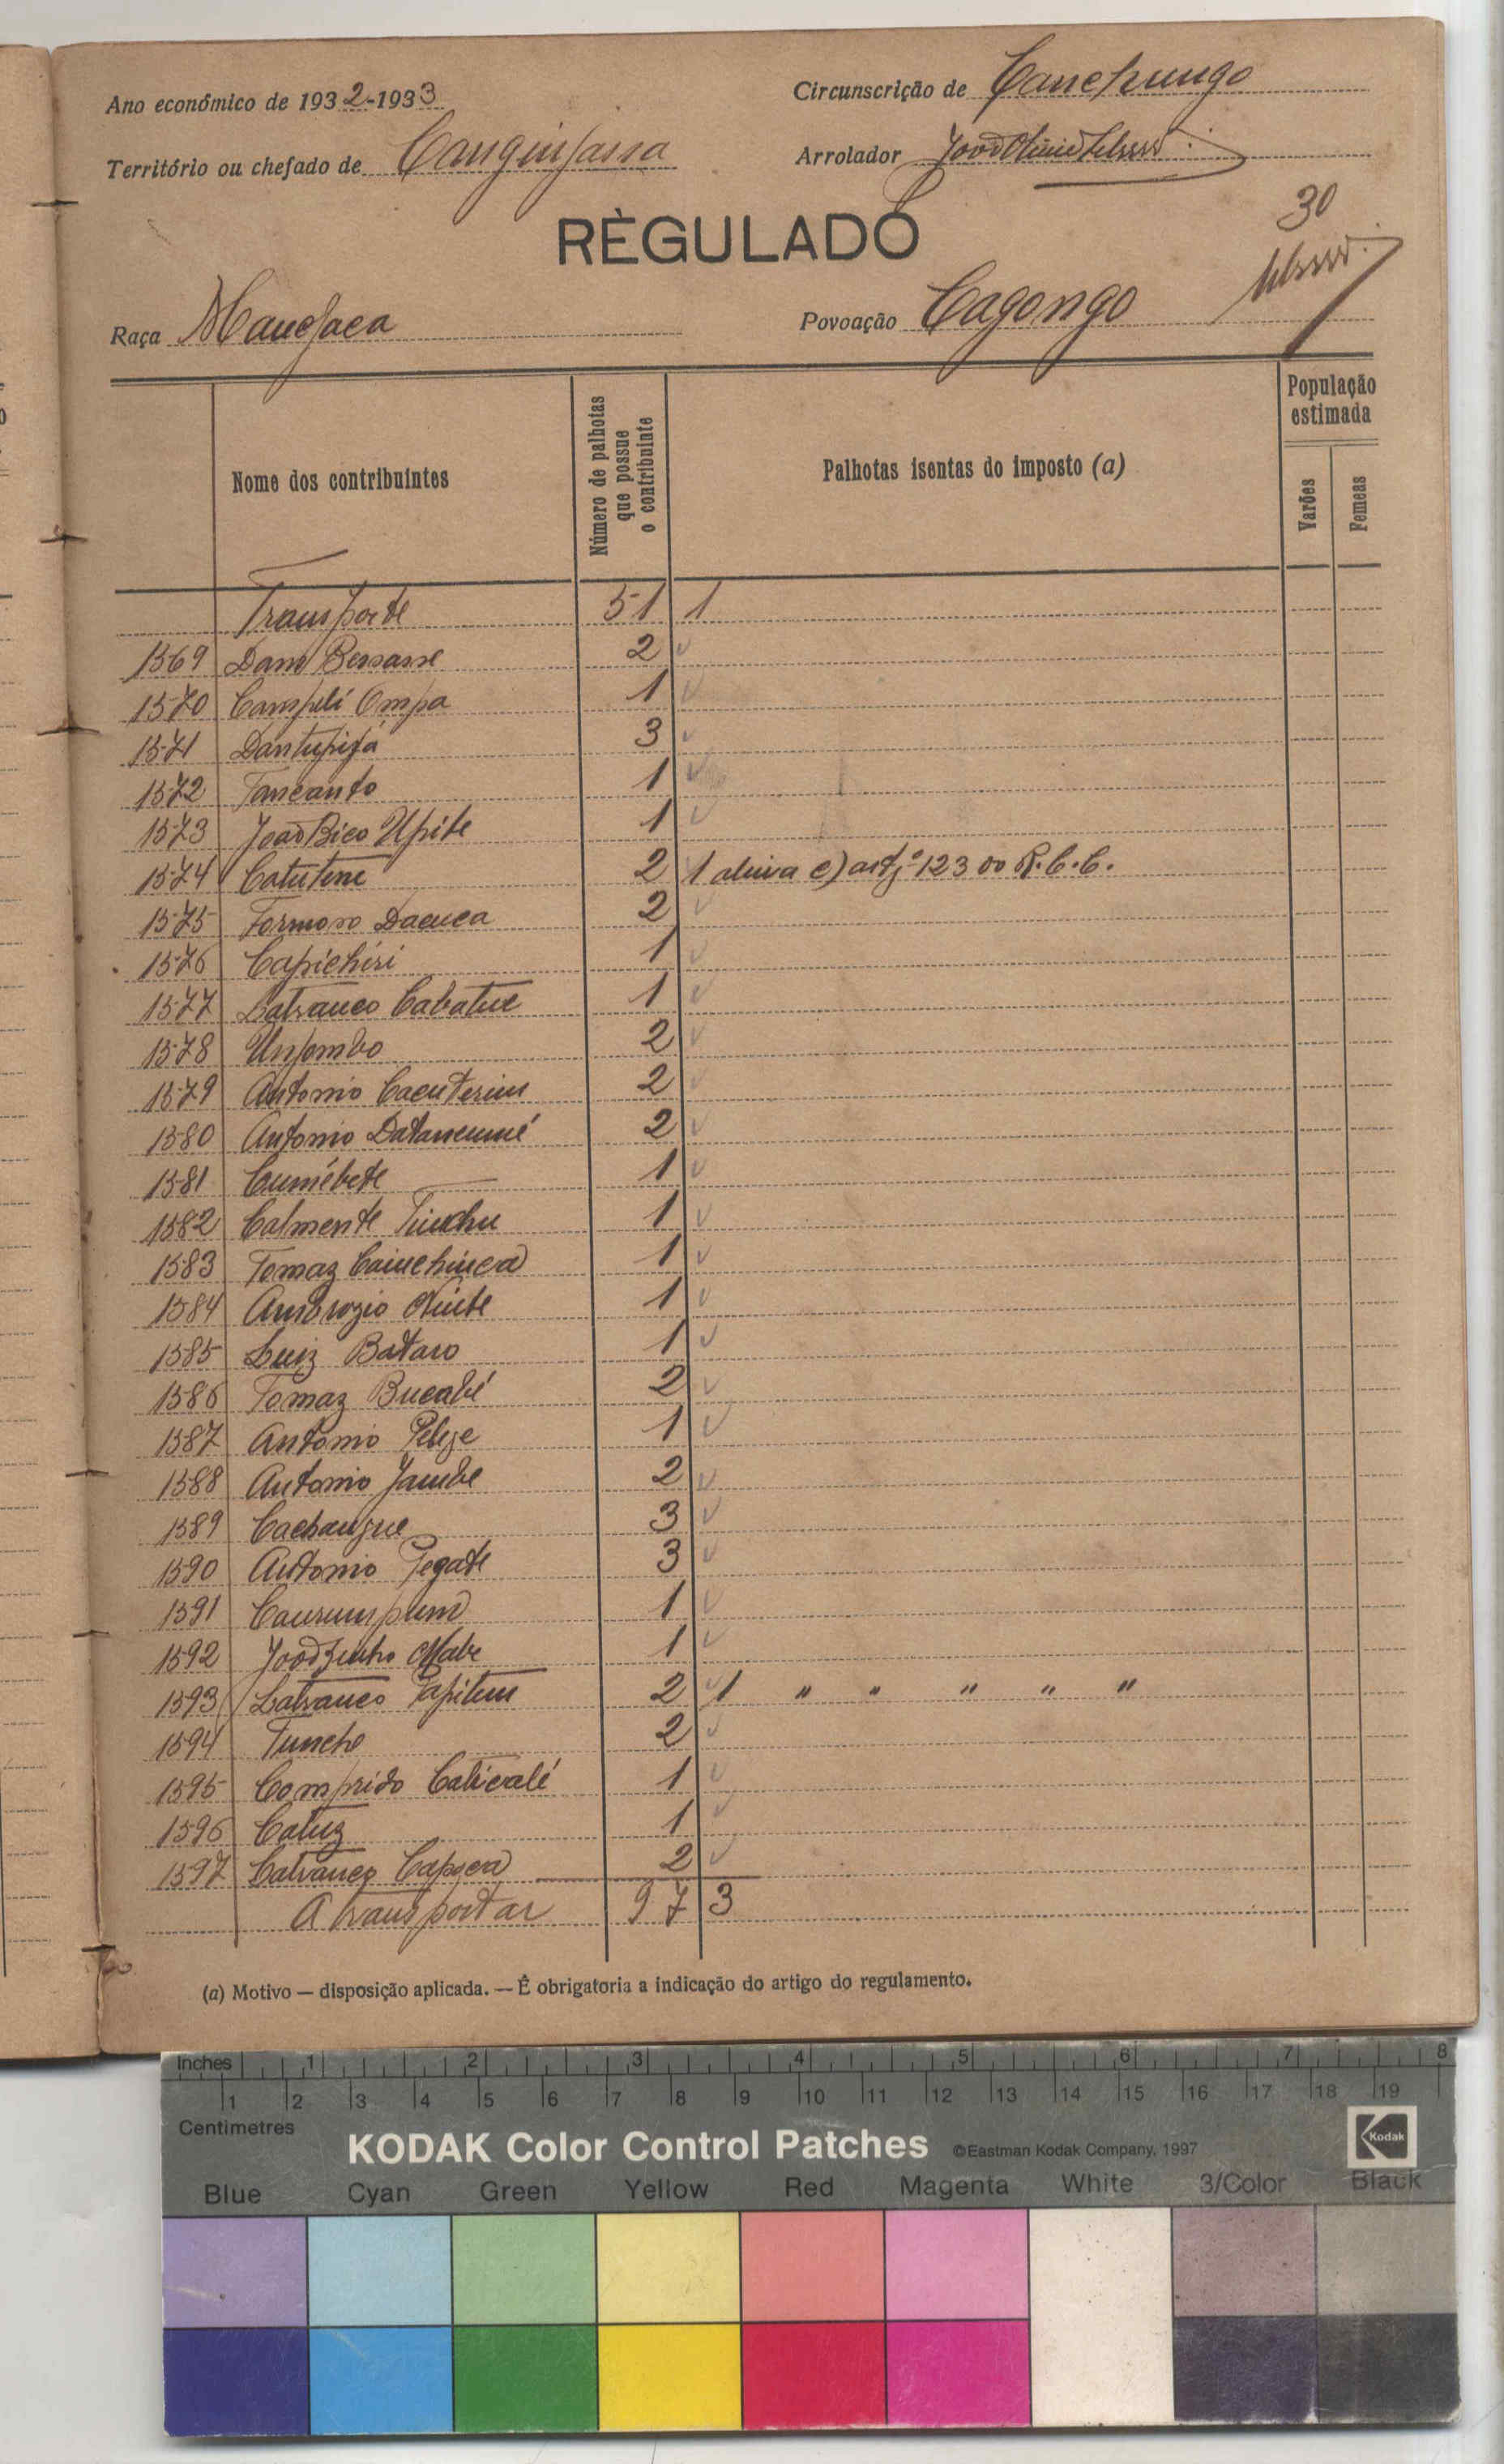 Ano económico de 1932-1933
Circunscrição de Canchungo
Território ou chefado de Canguinjassa
Arrolador
RÈGULADO
30
Raça Mancjaca
Povoação Cagongo
Nome dos contribuintes
Número de palhotas que possue o contribuinte
Palhotas isentas do imposto (a)
População estimada
Varões
Femeas
Transporte 51 1
1569 Dam Bessasse 2
1570 Campelí Ompa 1
1571 Dantupifá 3
1572 Tancanto 1
1573 João Bico Upite 1
1574 Catutene 2 1 alinia e) artg.º 123 do R.C.C.
1575 Formoso Dacuca 2
1576 Capichiri 1
1577 Batranco Cabatue 1
1578 Unpombo 2
1579 Antonio Cacuterim 2
1580 Antonio Datancumé 2
1581 Cumébete 1
1582 Calmente Tinchu 1
1583 Tomaz Cainchinca 1
1584 Ambrozio Ninte 1
1585 Luiz Bataro 1
1586 Tomaz Bucabé 2
1587 Antonio Pelize 1
1588 Antonio Jambe 2
1589 Cachangue 3
1590 Antonio Pegate 3
1591 Caurumpum 1
1592 Joãozinho Mabe 1
1593 Batranco Tapitum 2 1 " " " " "
1594 Tunche 2
1595 Comprido Caticalé 1
1596 Catuz 1
1597 Catranco Capoca 2
A transportar 97 3
(a) Motivo — disposição aplicada. — É obrigatoria a indicação do artigo do regulamento.
Inches 1 2 3 4 5 6 7 8
1 2 3 4 5 6 7 8 9 10 11 12 13 14 15 16 17 18 19
Centimetres
KODAK Color Control Patches ©Eastman Kodak Company, 1997 Kodak
Blue Cyan Green Yellow Red Magenta White 3/Color Black